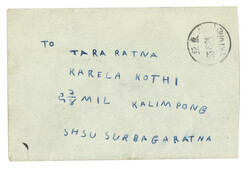 TO
TARA RATNA
KARELA KOTHI
MIL KALIMPONG
SHSU SURBAGARATNA